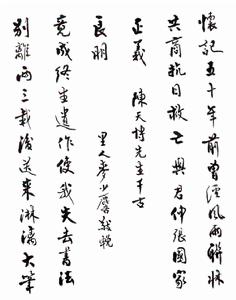 懷記五十年前曾經風雨聯牀
共商抗日救亡與君伸張國家
正義
陳天博先生千古
別離兩三載後送來淋漓大筆
竟成終生遺作使我失去書法
良朋
里人麥少麐敬輓